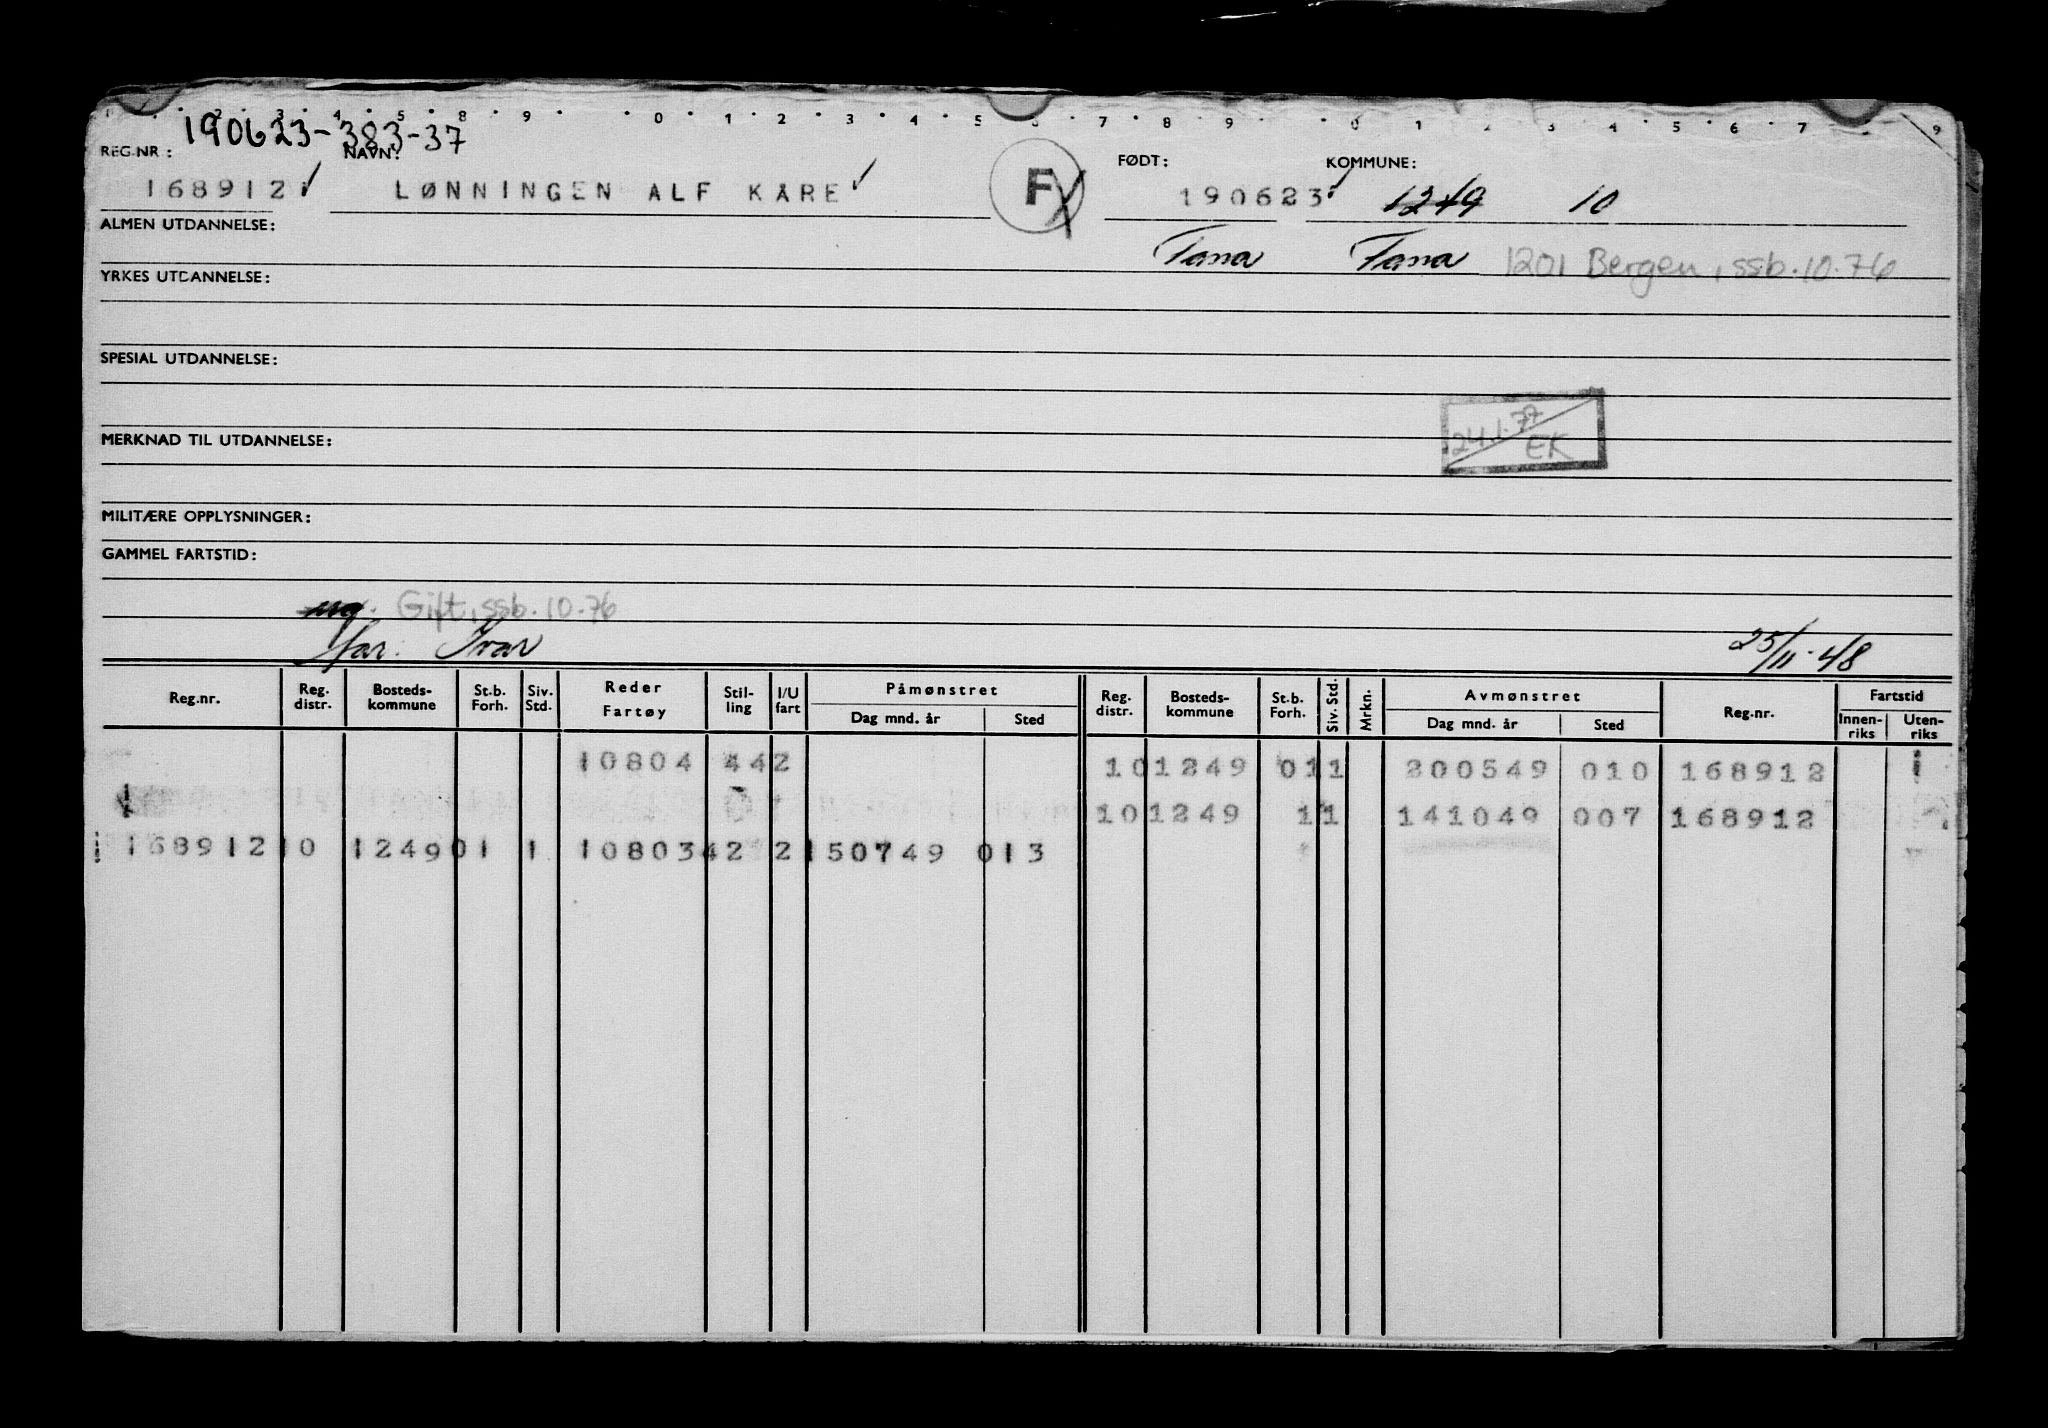 1 2 3 4 5 8 9 0 1 2 3 4 5 6 7 8 9 0 1 2 3 4 5 6 7 9
190623-383-37
REG.NR: NAVN: F FØDT: KOMMUNE:
168912 LØNNINGEN ALF KÅRE 190623 1249 10
ALMEN UTDANNELSE:
Fana Fana 1201 Bergen, ssb.10.76
YRKES UTDANNELSE:
SPESIAL UTDANNELSE:
24.1.77
EK
MERKNAD TIL UTDANNELSE:
MILITÆRE OPPLYSNINGER:
GAMMEL FARTSTID:
ug. Gift, ssb.10.76
far: Ivar 25/11-48
Reg.nr. Reg. distr. Bosteds-kommune St.b. Forh. Siv. Std. Reder Fartøy Stil-ling I/U fart Påmønstret Dag mnd. år Sted Reg. distr. Bosteds-kommune St.b. Forh. Siv. Std. Mrkn. Avmønstret Dag mnd. år Sted Reg.nr. Fartstid Innen-riks Uten-riks
10804 442 10 1249 01 1 200549 010 168912
10 1249 1 1 141049 007 168912
168912 10 1249 01 1 10803 42 2 150749 013